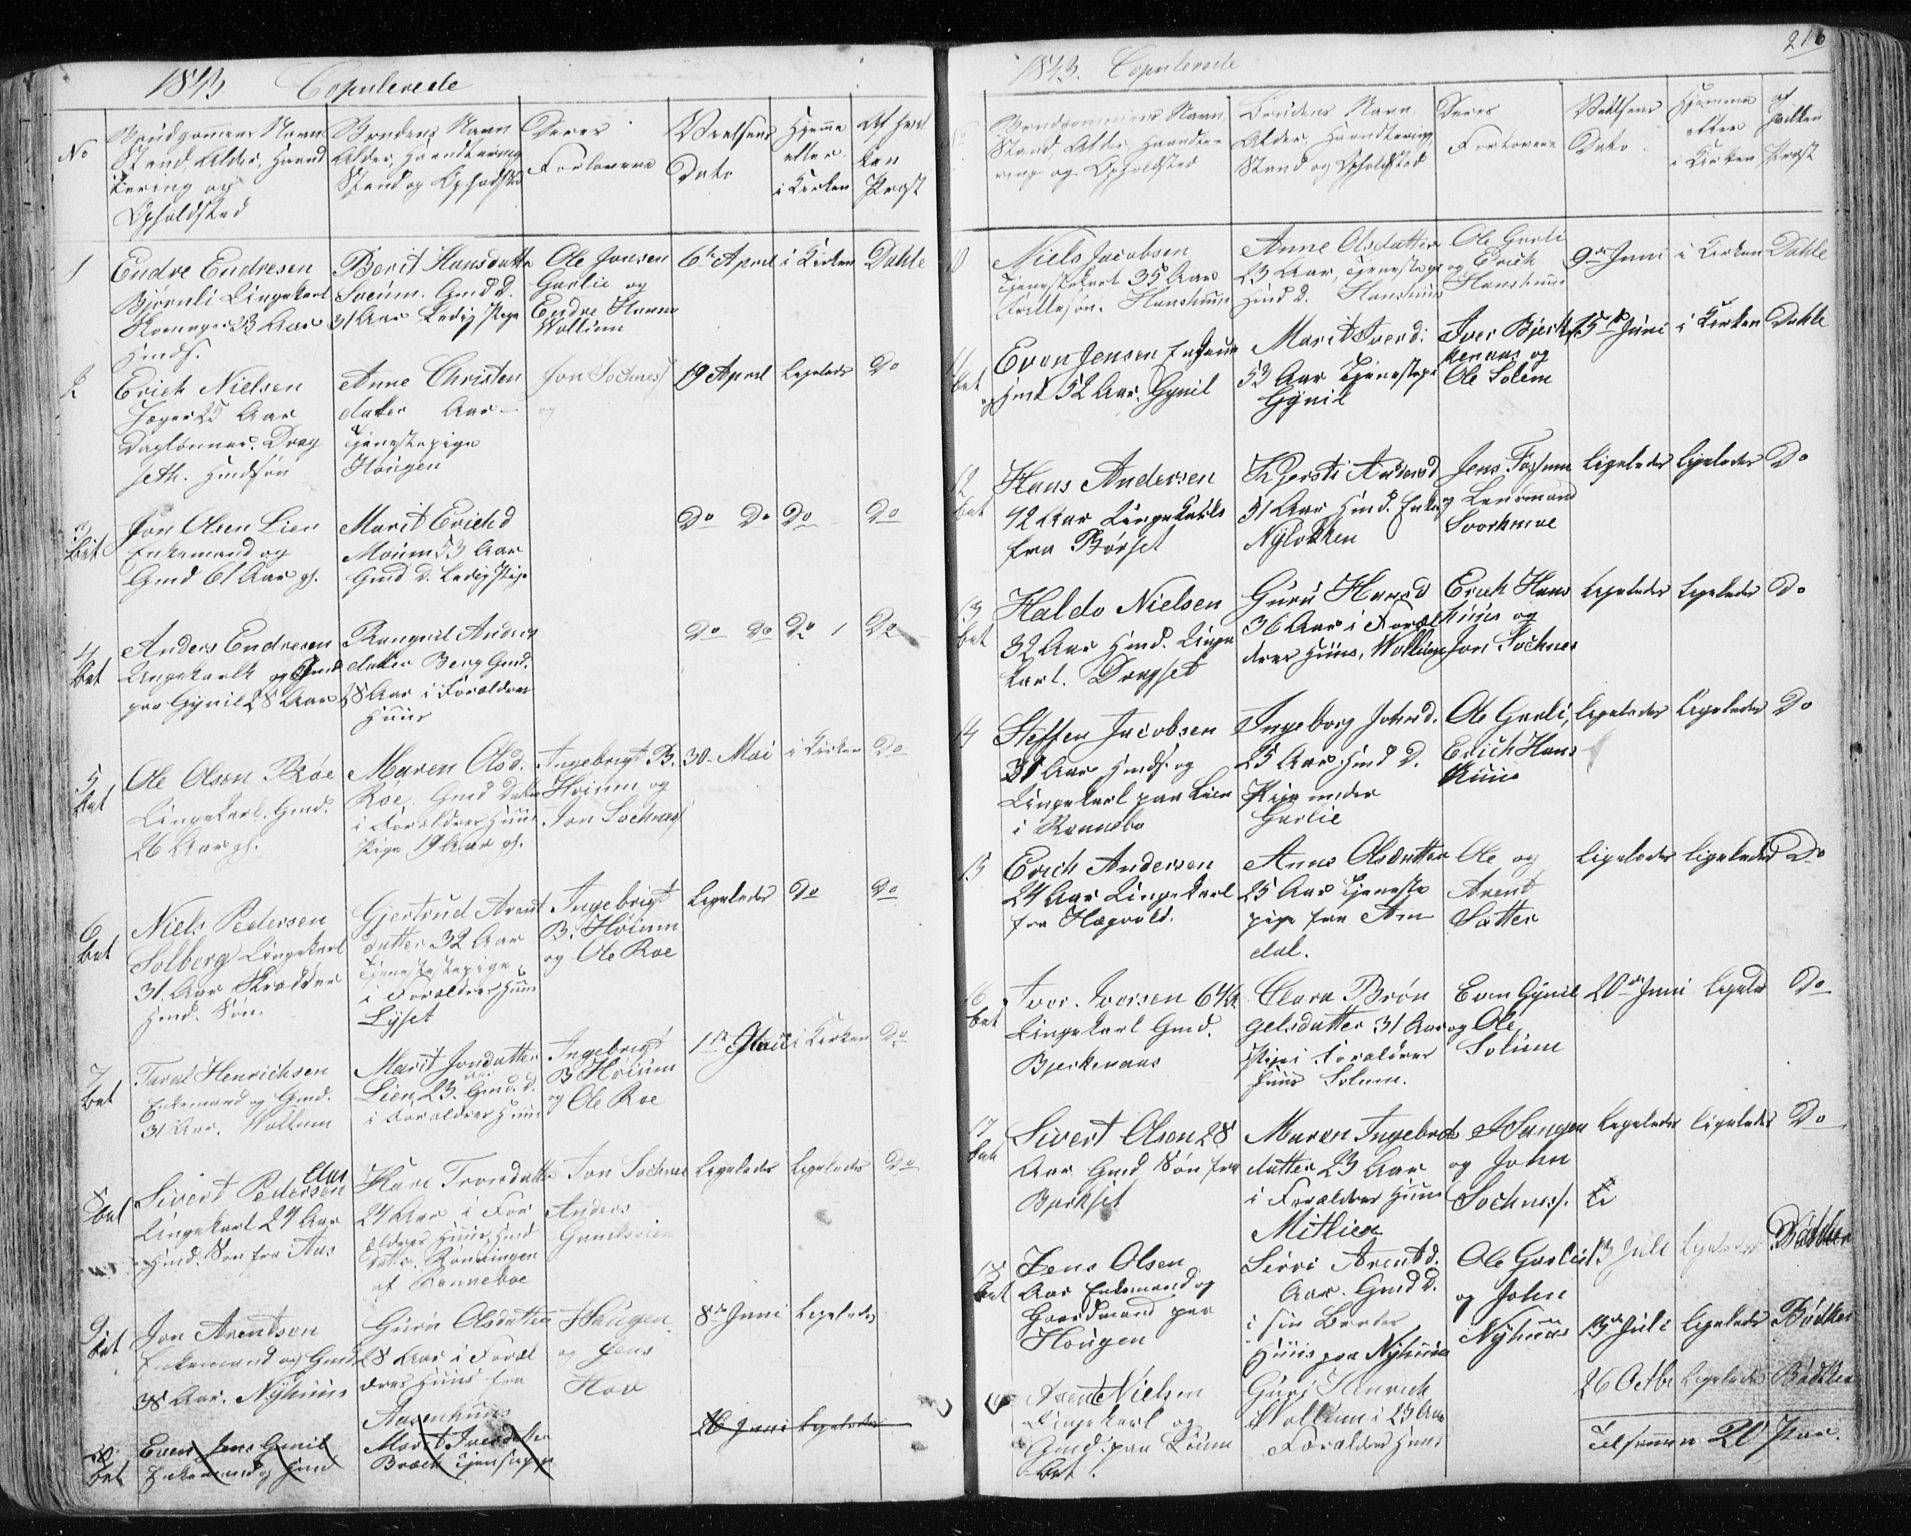 1843 Copulerede
No
Brudgommens Navn
Stand, Alder, Haand
tering og
Opholdsted
Brudens Navn
Alder, Haandtering
Stand og Opholdsted
Deres
Forlovere
Vielsens
Dato
Hjemme
eller
i Kirken
Af hvil
ken
Præst
1
Endre Endresen
Bjørnli Ungekarl
33 Aar
Hmds.
Berit Hansdatte
Gmd d.
31 Aar Ledig Pige
Ole Jonsen
Garlie og
Endre
Wollum
6te April
i Kirken
Dahle
2
Erich Nielsen
25 Aar
Daglønner. Drag
seth. Hmdsøn
Anne Christen
datter Aar
Tjenestepige
Hougen
Jon Sochness
og
19 April
Ligeleds
Do
3
bet
Jon Olsen Lien
Enkemand og
Gmd 61 Aar gl.
Marit Erichd
Moum 53 Aar
Gmd D. Ledig Pige
Do Do
Do
Do
4
bet
Anders Endresen
Ungekarl og Gmd
paa Gynil 28 Aar
Rangnil Anders
datter Berg Gmd.
28 Aar i Forældres
Huus
Do Do
Do
Do
5
bet
Ole Olsen Røe
Ungekarl. Gmd.
26 Aar gl.
Maren Olsd.
Roe. Gmd Datter
i Forældres Huus
Pige 19 Aar gl.
Ingebrigt B.
Hoium og
Jon Sochness
30 Mai
i Kirken
Do
6
bet
Niels Pedersen
Solberg Ungekarl
31. Aar Skrædder
Hmd. Søn.
Gjertrud Arent
datter 32 Aar
Tjenestepige
i Forældres Huus
Lyset
Ingebrigt
B. Hoium
og Ole Roe
Ligeleds
Do
Do
7
bet
Tarald Henrichsen
Enkemand og Gmd.
31 Aar. Wollum
Marit Jonsdatter
Lien 23. Gmd. d.
i Forældres Huus
Ingebrigt
B Hoium
og Ole Roe
1ste Juni
i Kirken
Do
8
bet
Sivert Pedersen
Aas
Ungekarl 24 Aar
Hmd. Søn fra Aas
Kari Trondsdatte
24 Aar i For
ældres Huus Hmd
Datter. Rønningen
af Renneboe
Jon Sochnes
Anders
Ligeleds
Ligeleds
Do
9
bet
Jon Arentsen
Enkemand og Gmd
38 Aar. Nyhuus
Guru Olsdatter
28 Aar i Foræl
dres Huus fra
Aasenhuus
Hougen
og Jens
Hov
8de Juni
Ligeleds
10
bet
Even Jens Gynil
Enkemand og Hmd
Marit Iversdatter
Bræck
16 Juni Ligeleds
216
1843. Copulerede
Brudgommens Navn
Stand, Alder, Haandte
ring og Opholdsted
Brudens Navn
Alder, Haandtering
Stand og Opholdsted
Deres
Forlovere
Vielsens
Dato
Hjemme
eller
i Kirken
af
hvilken
Præst
10
Niels Jacobsen
Tjenestekarl 35 Aar
Hanshuus
Anne Olsdatter
23 Aar, Tjenestepige
Hmd D. Hanshuus
Ole Garli
og Erich
Hanshuus
9de Juni
i Kirken
Dahle
11
bet
Even Jensen Enkem
og Hmd 52 Aar. Gynil
Marit Iversd.
53 Aar Tjenestepige
Gynil
Iver Bjerke
kenaas og
Ole Solem
15de Juni
i Kirken
Dahle
12
bet
Hans Andersen
42 Aar Ungekarl
fra Børset
Kjersti Andersd
31 Aar Hmd. Enke
Nyløkken
Jens Fossum
og Lensmand
Svorkmoe
Ligeledes
Ligeledes
Do
13
bet
Haldo Nielsen
32 Aar Hmd. Unge
karl. Dragset
Guru Hansd
36 Aar i Foræl
dres Huus, Wollum
Erich Hans
huus og
Jon Sochnes
Ligeledes
Ligeledes
Do
14
Steffen Jacobsen
31 Aar Hmds og
Ungekarl paa Lien
i Rennebo
Ingeborg Johnsd.
25 Aar Hmd D.
Pige under
Garlie
Ole Garli,
Erich Hans
huus
Ligeledes
Ligeledes
Do
15
Erich Andersen
24 Aar Ungekarl
fra Hægvold.
Anne Olsdatter
25 Aar Tjeneste
pige fra Am
dal.
Ole og
Arent
Sætter
Ligeledes
Ligeledes
Do
16
bet
Iver Iversen 64½
Ungekarl Gmd.
Bjerkenaas
Clara Brøn
gelsdatter 31 Aar
Pige i Forældres
Huus Solum.
Even Gynil
og Ole
Solum
20de Juni
Ligeleds
Do
17
bet
Sivert Olsen 28
Aar Gmd Søn fra
Bjerkset
Maren Ingebrigts
datter 23 Aar
i Forældres Huus
Mitlien
Haugen
og John
Sochness.
Ligeledes
Ligeledes
Do
18
bet
Jens Olsen
Aar Enkemand og
Gaardmand paa
Hougen
Sirri Arentd.
Aar. Gmd D.
i sin Broders
Huus paa Nyhuus
Ole Garlie
og John
Nyhuus
13 Juli
Ligeledes
Bødtker
13de Juli
Ligeledes
Bødtker
19
Arent Nielsen
Ungekarl og
Gmd. paa
bet.
Guri Henrich
Wollum i 23 Aar
Forældres Huus
26 Octbr
Ligeledes
Bødtker
Tilsammen 20 Par.